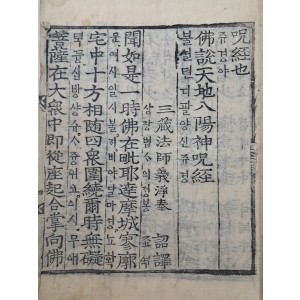 呪經也
쥬경야
佛說天地八陽神呪經
불셜텬디팔양신쥬경
三藏法師義淨奉 詔譯
聞如是一時佛在毗耶達摩城寥廓
宅中十方相隨四衆圍繞爾時無礙
菩薩在大衆中即從座起合掌向佛